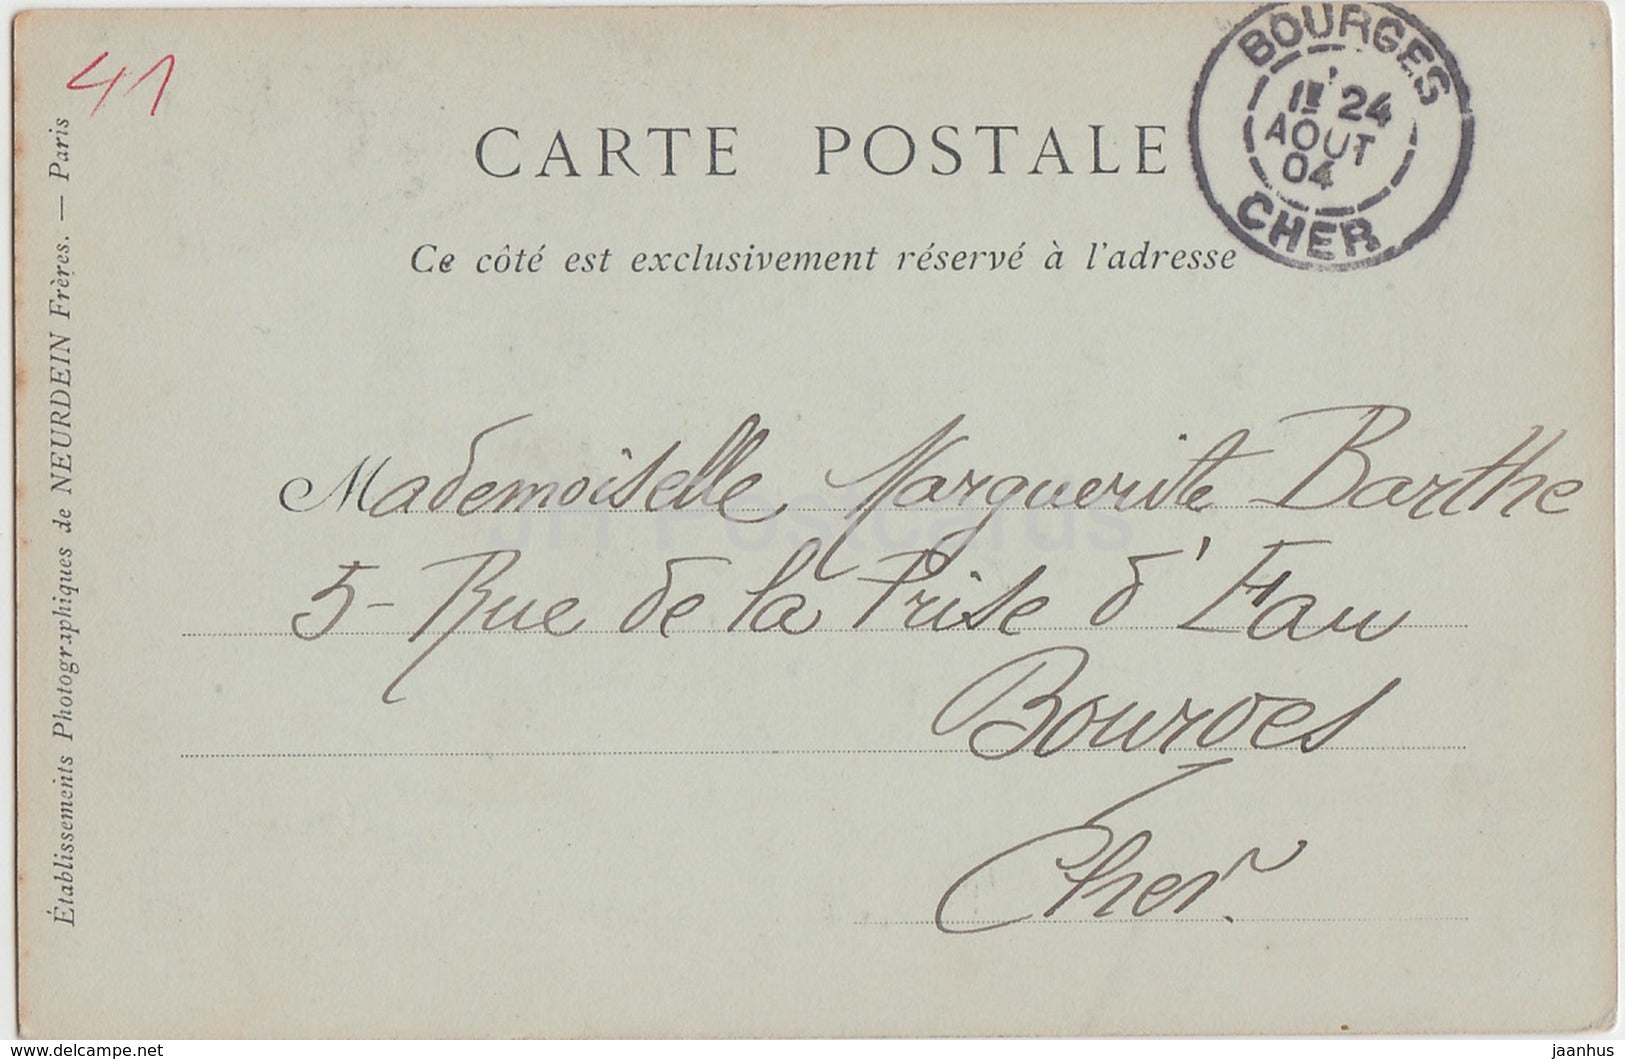 41
BOURGES
24
AOUT
04
CHER
CARTE POSTALE
Ce côté est exclusivement réservé à l'adresse
Mademoiselle Marguerite Barthe
5 - Rue de la Prise d'Eau
Bourges
Cher.
Établissements Photographiques de NEURDEIN Frères. — Paris
JH Postcards
www.delcampe.net
jaanhus